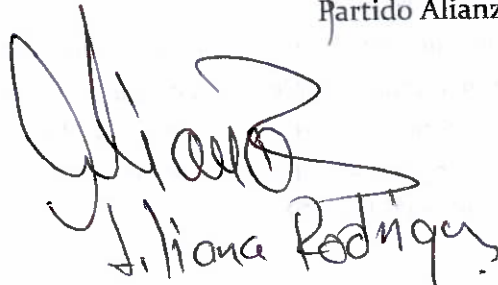 Partido Alianz
Liliana Rodrigez